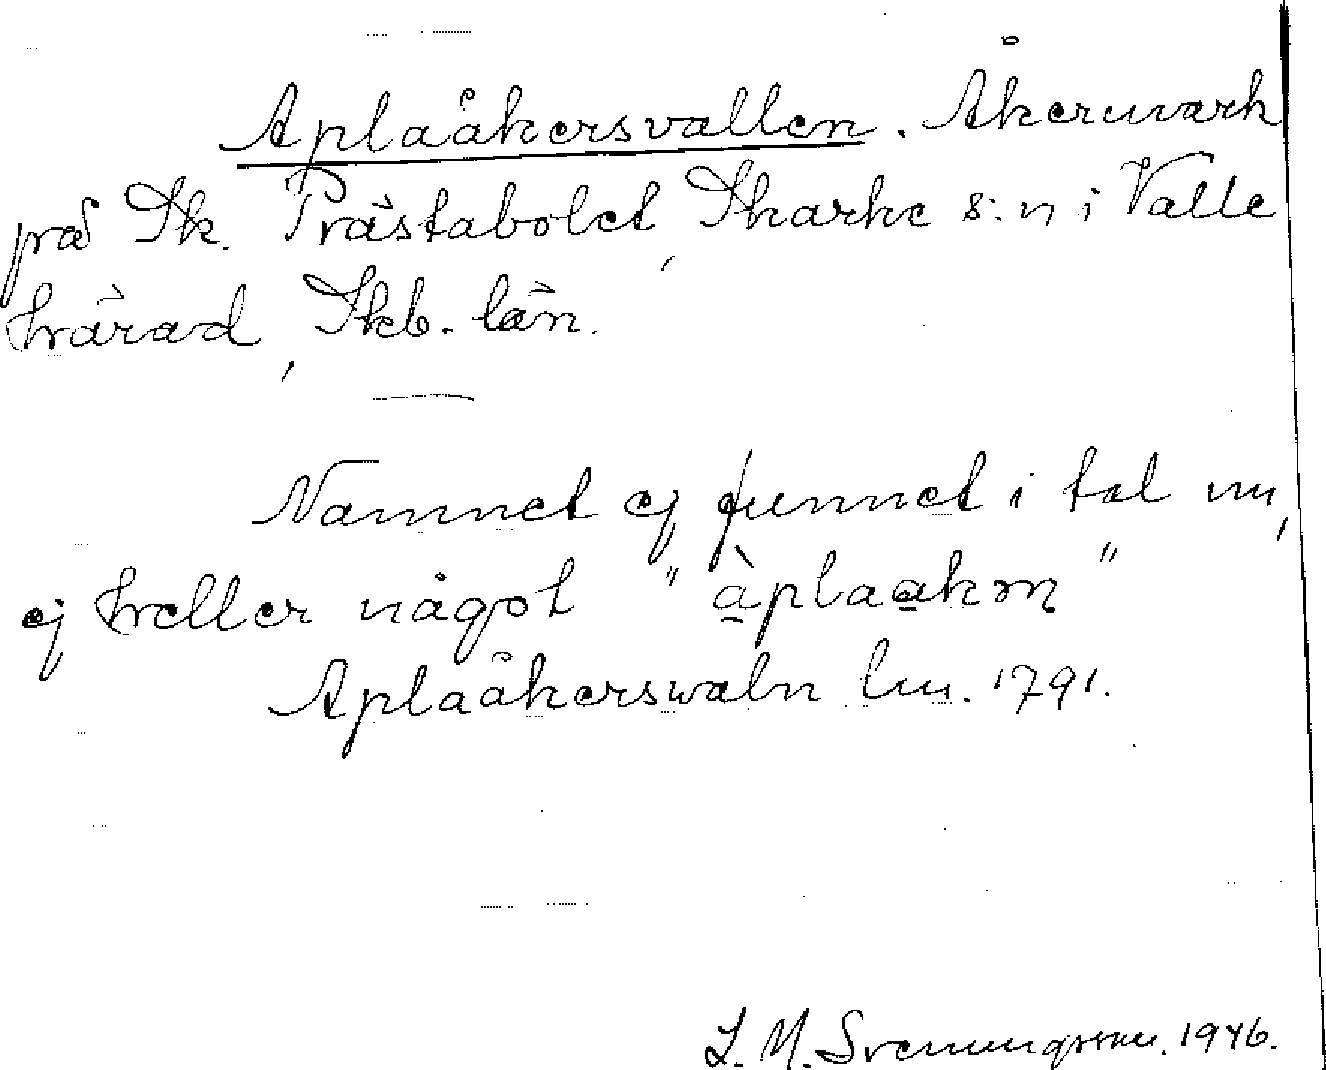 Aplaåkersvallen. Åkermark
på Sk. Prästabolet, Skarke s:n i Valle
härad, Skb. län.
Namnet ej funnet i tal nu,
ej heller något "àplaakɷn"
Aplaåkerswaln lm. 1791.
L. M. Svenungsson. 1946.